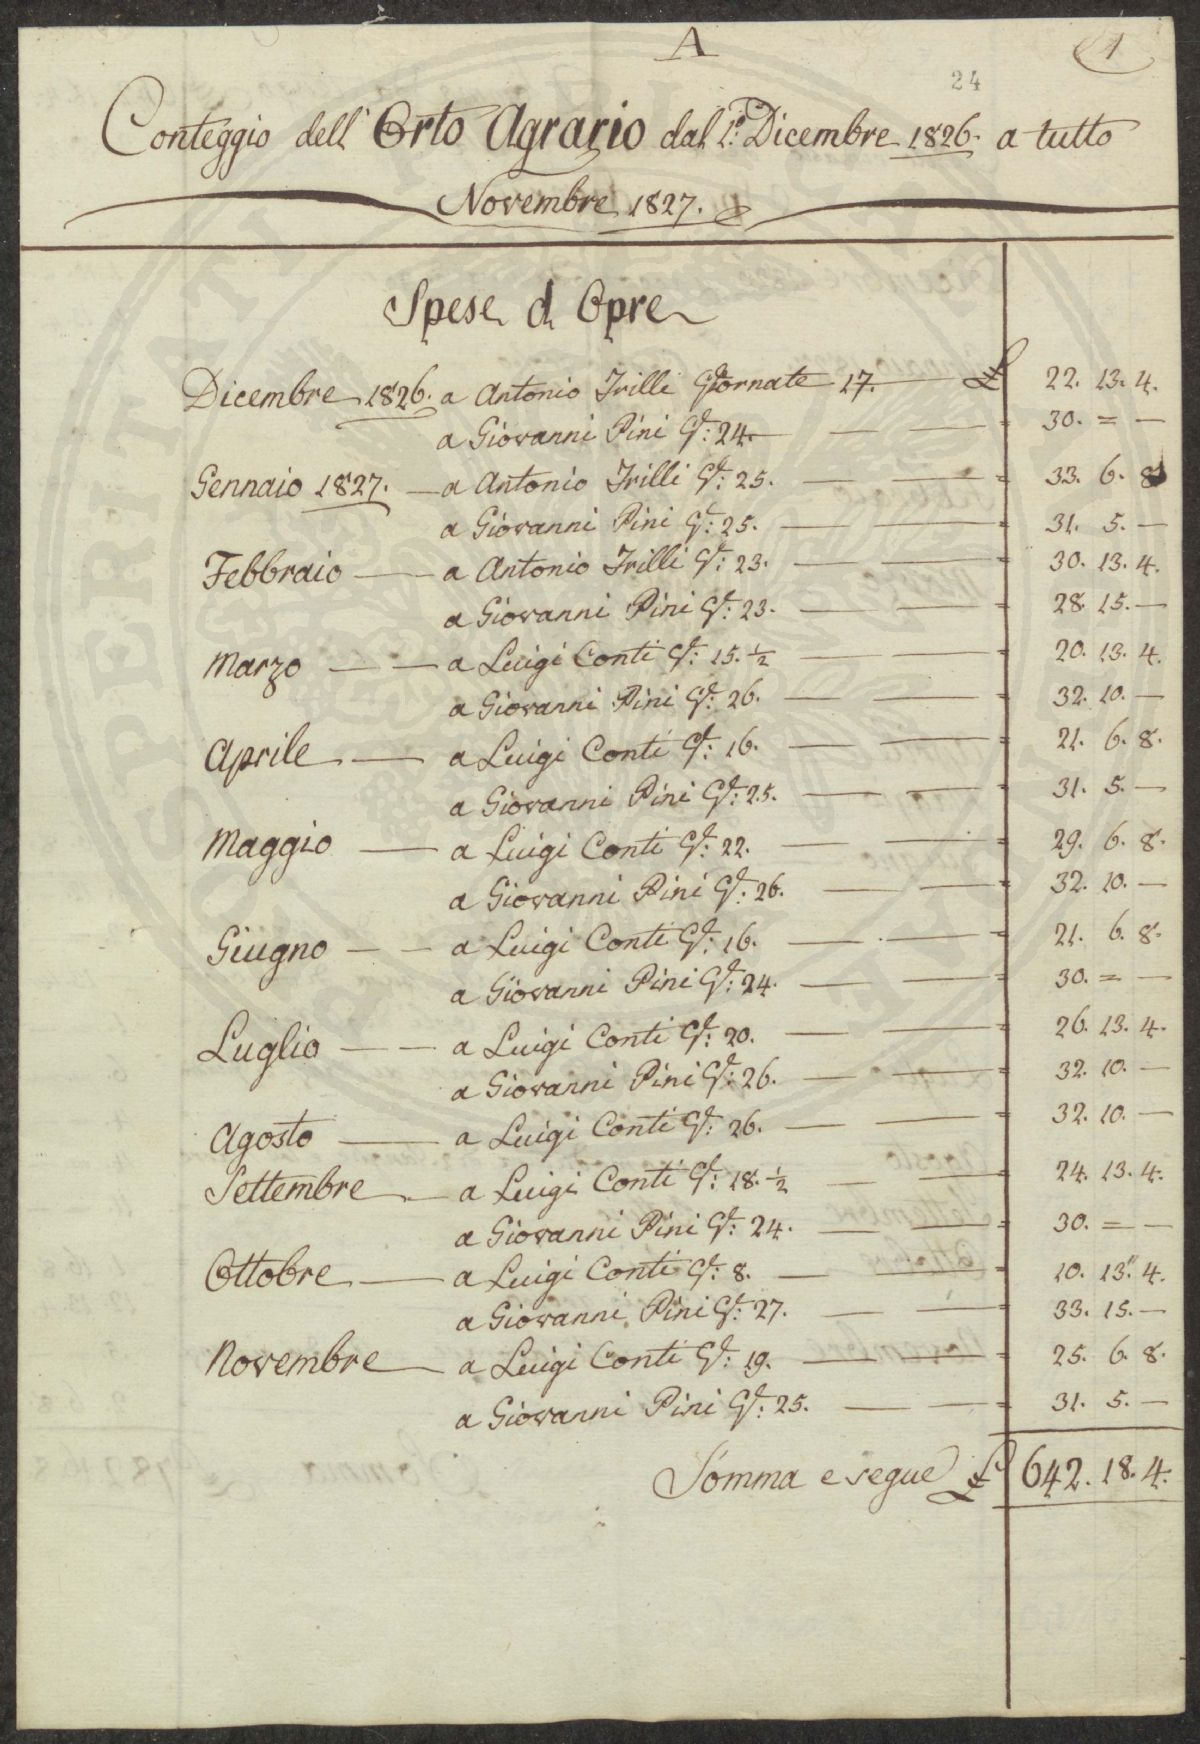 A
1
24
Conteggio dell' Orto Agrario dal 1.º Dicembre 1826. a tutto
Novembre 1827.
Spese d Opre
Dicembre 1826. a Antonio Trilli Giornate 17. — £ 22. 13. 4.
a Giovanni Pini G.te: 24. — — = 30. = —
Gennaio 1827. — a Antonio Trilli G.te: 25. — — = 33. 6. 8
a Giovanni Pini G.te: 25. — — = 31. 5. —
Febbraio — a Antonio Trilli G.te: 23. — — = 30. 13. 4.
a Giovanni Pini G.te: 23. — — = 28. 15. —
Marzo — — a Luigi Conti G.te: 15. ½ — — = 20. 13. 4.
a Giovanni Pini G.te: 26. — — = 32. 10. —
Aprile — a Luigi Conti G.te: 16. — — = 21. 6. 8.
a Giovanni Pini G.te: 25. — — = 31. 5. —
Maggio — a Luigi Conti G.te: 22. — — = 29. 6. 8.
a Giovanni Pini G.te: 26. — — = 32. 10. —
Giugno — — a Luigi Conti G.te: 16. — — = 21. 6. 8.
a Giovanni Pini G.te: 24. — — = 30. = —
Luglio — — a Luigi Conti G.te: 20. — — = 26. 13. 4.
a Giovanni Pini G.te: 26. — — = 32. 10. —
Agosto — a Luigi Conti G.te: 26. — — = 32. 10. —
Settembre — a Luigi Conti G.te: 18. ½ — — = 24. 13. 4.
a Giovanni Pini G.te: 24. — — = 30. = —
Ottobre — a Luigi Conti G.te: 8. — — = 10. 13. 4.
a Giovanni Pini G.te: 27. — — = 33. 15. —
Novembre — a Luigi Conti G.te: 19. — — = 25. 6. 8.
a Giovanni Pini G.te: 25. — — = 31. 5. —
Somma e segue £ 642. 18. 4.